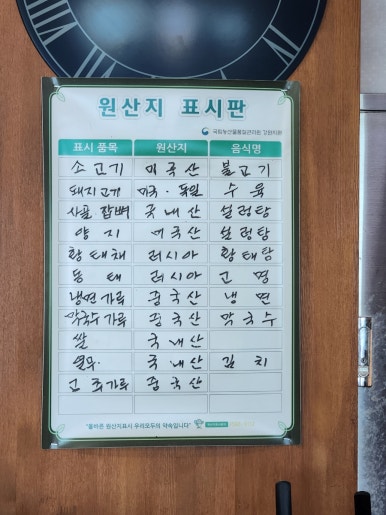 원산지 표시판
국립농산물품질관리원 강원지원
표시 품목 원산지 음식명
소고기 미국산 불고기
돼지고기 미국·독일 수육
사골 잡뼈 국내산 설렁탕
양지 미국산 설렁탕
황태채 러시아 황태탕
동태 러시아 고명
냉면가루 중국산 냉면
막국수가루 중국산 막국수
쌀 국내산
열무 국내산 김치
고추가루 중국산
"올바른 원산지표시 우리모두의 약속입니다"